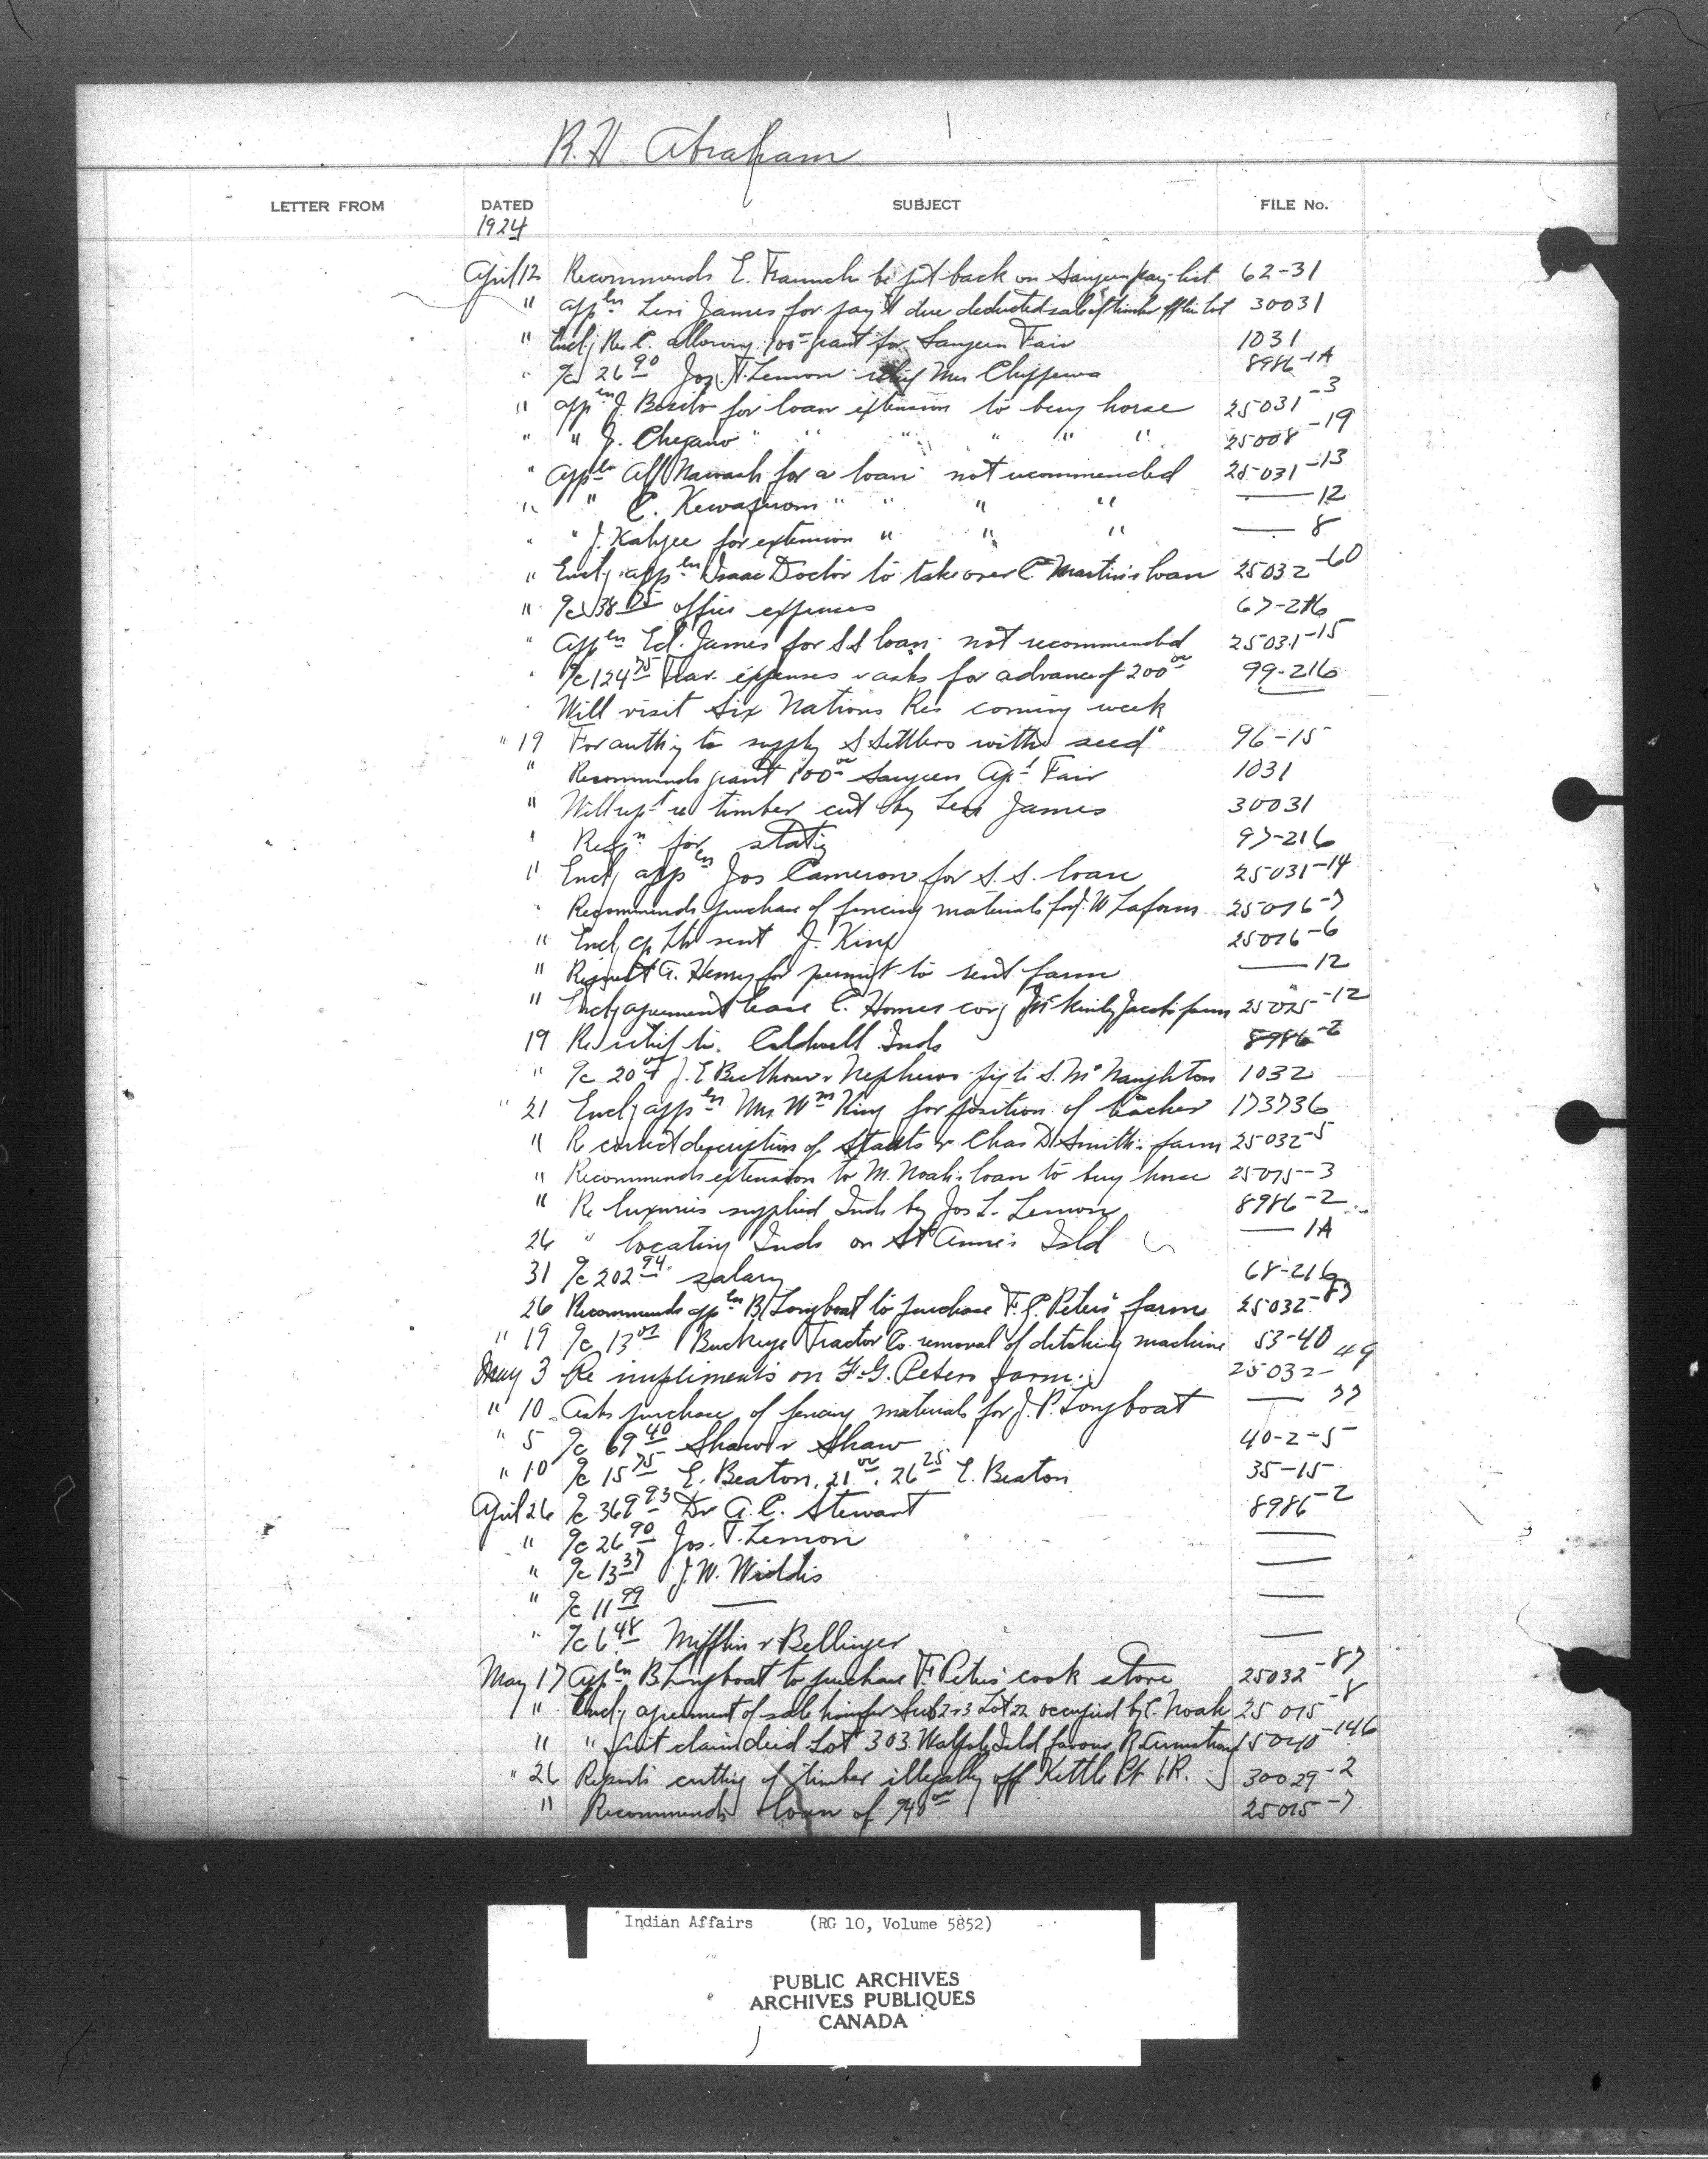 R. H. Abraham
LETTER FROM DATED SUBJECT FILE No.
1924
April 12 Recommends E. be put back on Saugeen pay-list 62-31
" appln Levi James for pay't due deducted sale of timber off his lot 30031
" Encl'g Res C. allowing 100 grant for Saugeen Fair 1031
" a/c 26 90 Jos. T. Lemon relief Mrs Chippewa 8986-1A
" appln J. for loan extension to buy horse 25031-3
" " J. " " " " " " 25008-19
" appln Alf for a loan not recommended 25031-13
" " C. " " " " — 12
" " J. Kahgee for extension " " " — 8
" Encl'g appln Isaac Doctor to take over C. Martin's loan 25032-60
" a/c 38 75 office expenses 67-216
" appln Ed. James for S S loan not recommended 25031-15
" a/c 124 75 Trav. expenses & asks for advance of 200 00 99-216
" Will visit Six Nations Res coming week
" 19 For auth'y to supply S Settlers with seed 96-15
" Recommends grant 100 00 Saugeen Agl Fair 1031
" Will rept re timber cut by Levi James 30031
" Reqn for stat'y 97-216
" Encl'g appln Jos Cameron for S. S. loan 25031-14
" Recommends purchase of fencing materials for J. W Laform 25016-7
" Encl'g cp ltr sent J. King 25016-6
" Request A. Henry for permit to rent farm — 12
" Encl'g agreement lease C. Homer Jacobs farm 25025-12
19 Re relief to Caldwell Inds 8986-2
" a/c 20 00 J. E & Nephews to S. McNaughton 1032
" 21 Encl'g appln Mrs Wm King for position of teacher 173736
" Re correct description of Staats & Chas D Smith's farm 25032-5
" Recommends extension to M. Noah's loan to buy horse 25015-3
" Re luxuries supplied Inds by Jos T. Lemon 8986-2
26 " locating Inds on St Anne's Isld — 1A
31 a/c 202 94 salary 68-216
26 Recommends appln B. Longboat to purchase F. G. Peters' farm 25032-87
" 19 a/c 13 00 Buckeye Tractor Co. removal of ditching machine 53-40
May 3 Re impliments on F. G. Peters farm 25032-49
" 10 Asks purchase of fencing materials for J. P. Longboat — 77
" 5 a/c 69 40 Shaw & Shaw 40-2-5
" 10 a/c 15 75 E. Beaton, 21 00, 26 25 E. Beaton 35-15
April 26 a/c 369 93 Dr A. C. Stewart 8986-2
" a/c 26 90 Jos. T. Lemon —
" a/c 13 37 J. W. Widdis —
" a/c 11 99 — —
" a/c 6 48 Mifflin & Bellinger —
May 17 appln B Longboat to purchase F. Peters' cook stove 25032-87
" Encl'g agreement of sale Lot 22 occupied by C. Noah 25015-8
" " quit claim deed Lot 303 Walpole Isld favour R. Armstrong 15040-146
" 26 Reports cutting of timber illegally off Kettle Pt I.R. 30029-2
" Recommends loan of 00 25015-7
Indian Affairs (RG 10, Volume 5852)
PUBLIC ARCHIVES
ARCHIVES PUBLIQUES
CANADA